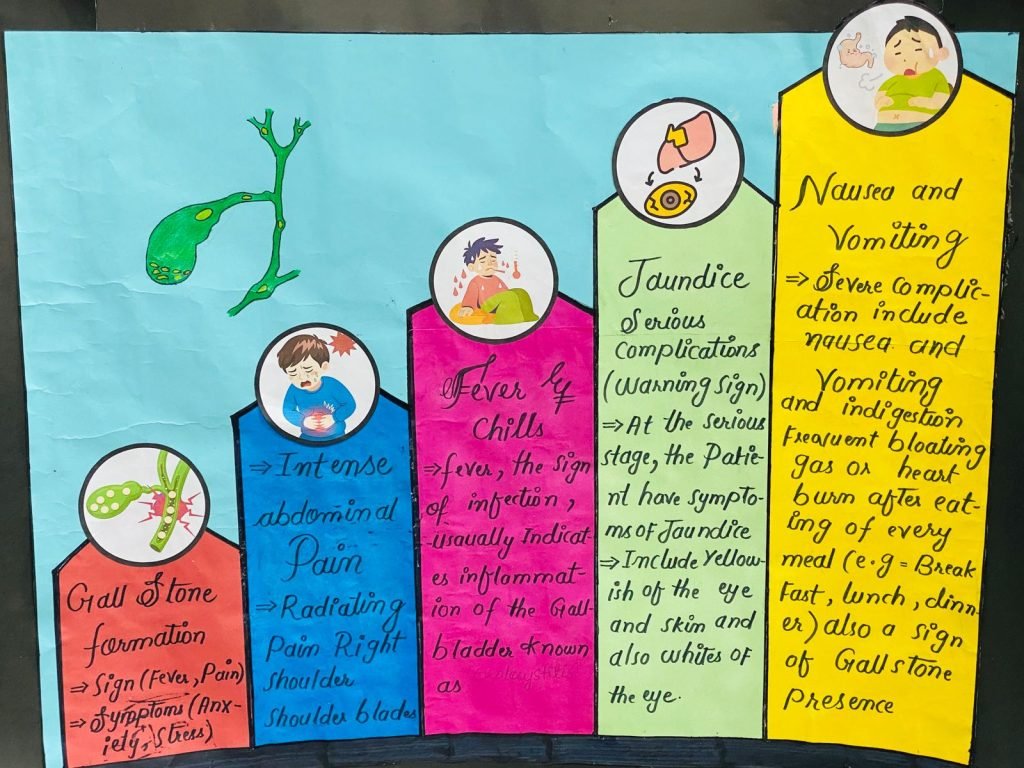 Gall Stone
formation
⇒ Sign (Fever, Pain)
⇒ Sympptoms (Anx-
iety, Stress)
⇒ Intense
abdominal
Pain
⇒ Radiating
Pain Right
shoulder
shoulder blades
Fever &
chills
⇒ fever, the sign
of infection,
usaually Indicat-
es inflammat-
ion of the Gall-
bladder known
as
Jaundice
Serious
complications
(Warning sign)
⇒ At the serious
stage, the Patie-
nt have sympto-
ms of Jaundice
⇒ Include Yellow-
ish of the eye
and skin and
also whites of
the eye.
Nausea and
Vomiting
⇒ Severe complic-
ation include
nausea and
Vomiting
and indigestion
Frequent bloating
gas or heart
burn after eat-
ing of every
meal (e.g = Break
Fast, lunch, dinn-
er) also a sign
of Gallstone
presence